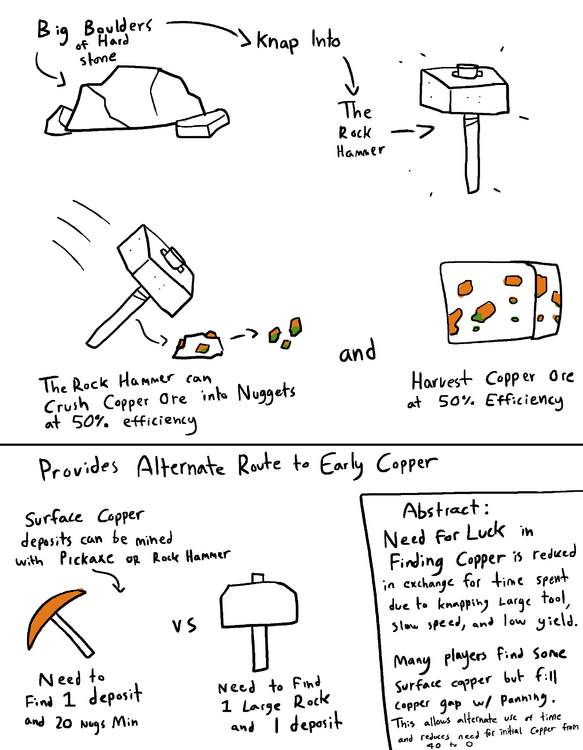 Big Boulders
of Hard
stone
Knap Into
The
Rock
Hammer
The Rock Hammer can
Crush Copper Ore into Nuggets
at 50% efficiency
and
Harvest Copper Ore
at 50% Efficiency
Provides Alternate Route to Early Copper
Surface Copper
deposits can be mined
with Pickaxe OR Rock Hammer
VS
Need to
Find 1 deposit
and 20 Nugs Min
Need to Find
1 Large Rock
and 1 deposit
Abstract:
Need For Luck in
Finding Copper is reduced
in exchange for time spent
due to knapping Large tool,
slow speed, and low yield.
Many players find some
surface copper but fill
copper gap w/ Panning.
This allows alternate use of time
and reduces need for initial Copper from
40 to 0